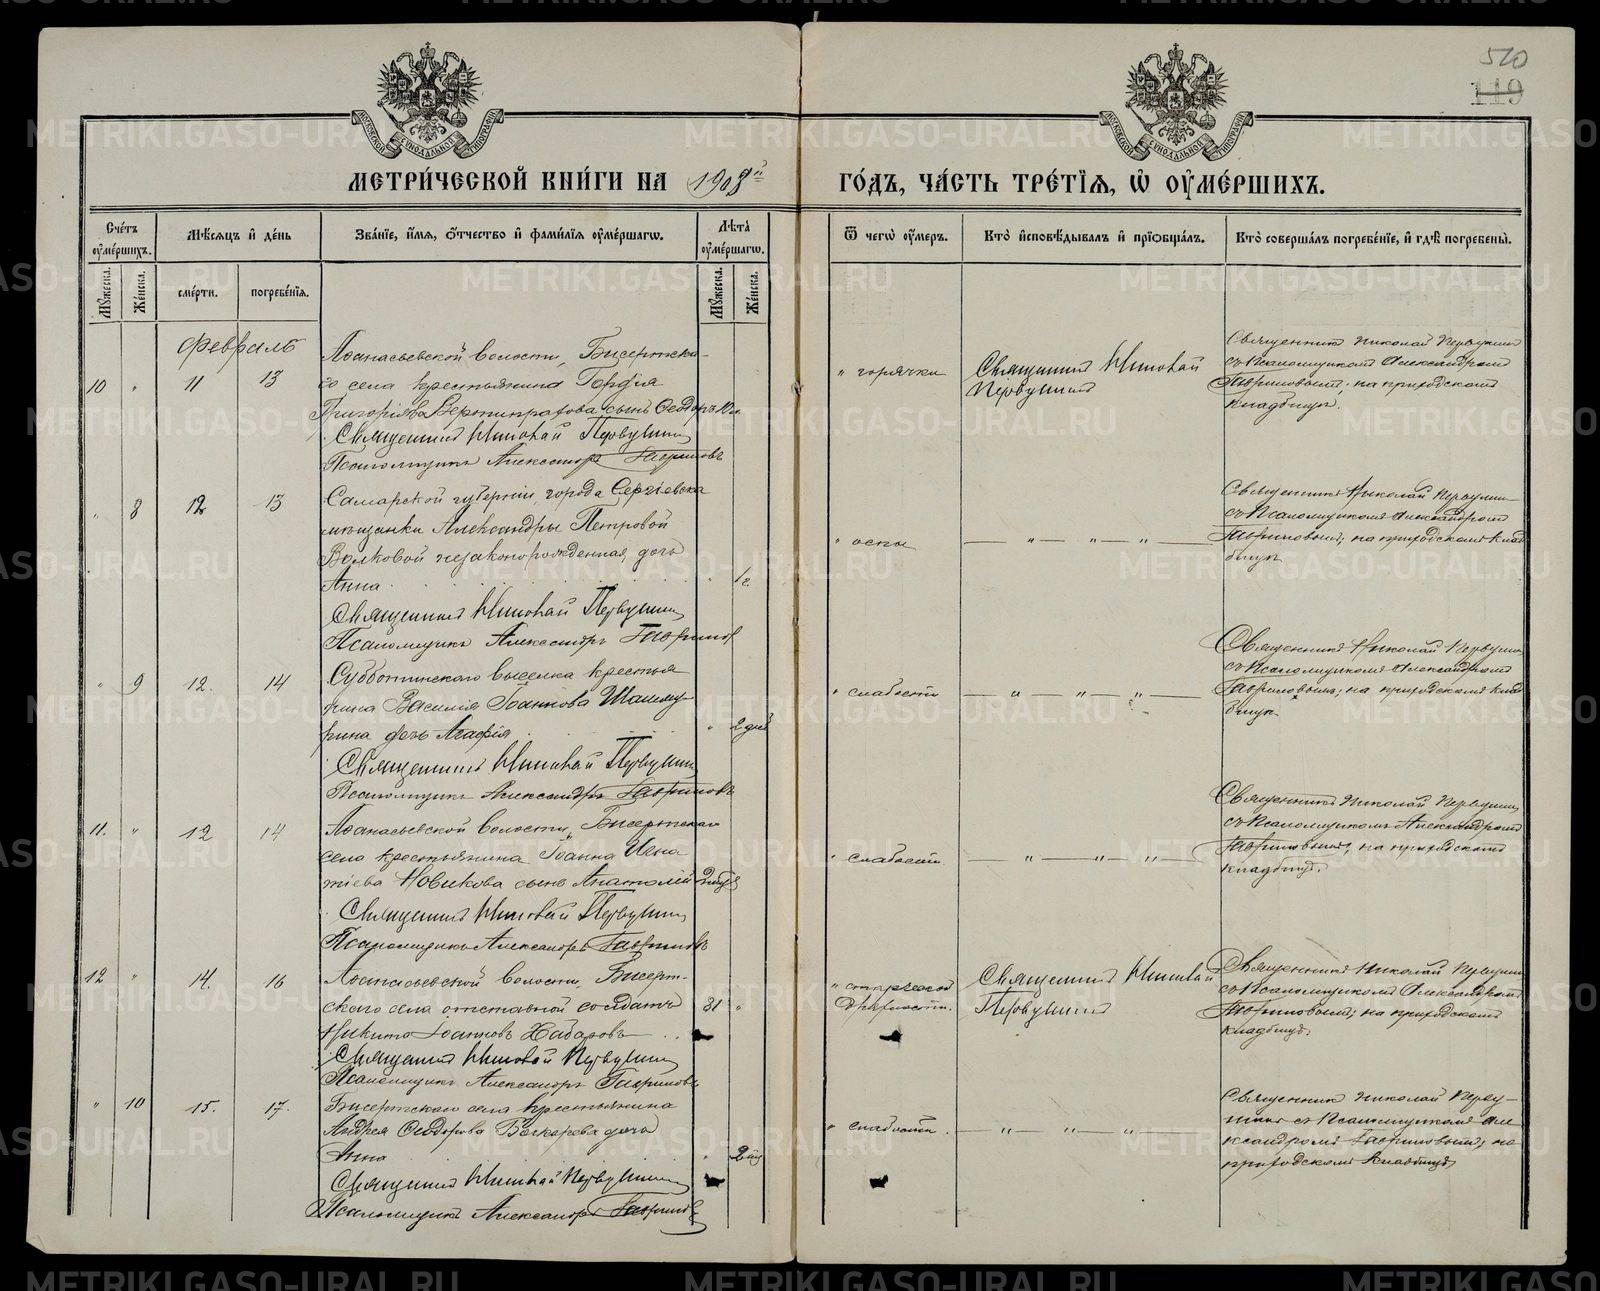 520
119
МЕТРИ́ЧЕСКОЙ КНИ́ГИ НА 1908й ГО́ДЪ, ЧА́СТЬ ТРЕ́ТІѦ, Ѡ҆ ОУ҆МЕ́РШИХЪ.
Сче́тъ оу҆ме́ршихъ.
Мѣ́сѧцъ и҆ де́нь
Зва́нїе, и҆́мѧ, ѻ҆́тчество и҆ фамі́лїѧ оу҆ме́ршагѡ.
Лѣ́та оу҆ме́ршагѡ.
Ѿ чегѡ̀ оу҆́меръ.
Кто̀ и҆сповѣ́дывалъ и҆ прїѡбща́лъ.
Кто̀ соверша́лъ погребе́нїе, и҆ гдѣ̀ погребены̀.
Му́жеска.
Же́нска.
сме́рти.
погребе́нїѧ.
Му́жеска.
Же́нска.
Февраль
10 " 11 13
Аѳанасьевской волости, Бисертска-
го села крестьянина
Григоріева сынъ Ѳеодоръ
Священникъ Николай Первушинъ
Псаломщикъ Александръ Гавриловъ
" горячки
Священникъ Николай
Первушинъ
Священникъ Николай Первушинъ
съ Псаломщикомъ Александромъ
Гавриловымъ; на приходскомъ
кладбищѣ.
" 8 12 13
Самарской губерніи, города Сергіевска
мѣщанки Александры Петровой
Волковой незаконорожденная дочь
Анна " 1 г.
Священникъ Николай Первушинъ
Псаломщикъ Александръ Гавриловъ
" оспы
— " — " — " —
Священникъ Николай Первушин
съ Псаломщикомъ Александромъ
Гавриловымъ; на приходскомъ клад
бищѣ
" 9 12. 14
Субботинского выселка крестья
нина Василія Іоаннова
рина дочь Агафія " 2 дней
Священникъ Николай Первушинъ
Псаломщикъ Александръ Гавриловъ
" слабости
— " — " — " —
Священникъ Николай Первушин
съ Псаломщикомъ Александромъ
Гавриловымъ; на приходскомъ клад
бищѣ
11. " 12 14
Аѳанасьевской волости, Бисертскаго
села крестьянина Іоанна Игна
тіева Новикова сынъ Анатолій
Священникъ Николай Первушинъ
Псаломщикъ Александръ Гавриловъ
" слабости.
— " — " — " —
Священникъ Николай Первушинъ
съ Псаломщикомъ Александромъ
Гавриловымъ; на приходскомъ
кладбищѣ.
12 " 14. 16
Аѳанасьевской волости, Бисерт-
скаго села отставной солдатъ 81 "
Никита Іоанновъ Хабаровъ
Священникъ Николай Первушинъ
Псаломщикъ Александръ Гавриловъ
" старческой
дряхлости.
Священникъ Николай
Первушинъ
Священникъ Николай Первушинъ
съ Псаломщикомъ Александромъ
Гавриловымъ; на приходскомъ
кладбищѣ.
" 10 15. 17.
Бисертскаго села крестьянина
Андрея Ѳеодорова дочь
Анна "
Священникъ Николай Первушинъ
Псаломщикъ Александръ Гавриловъ
" слабости.
— " — " — "
Священникъ Николай Перву-
шинъ съ Псаломщикомъ Але
ксандромъ Гавриловымъ; на
приходскомъ кладбищѣ
METRIKI.GASO-URAL.RU